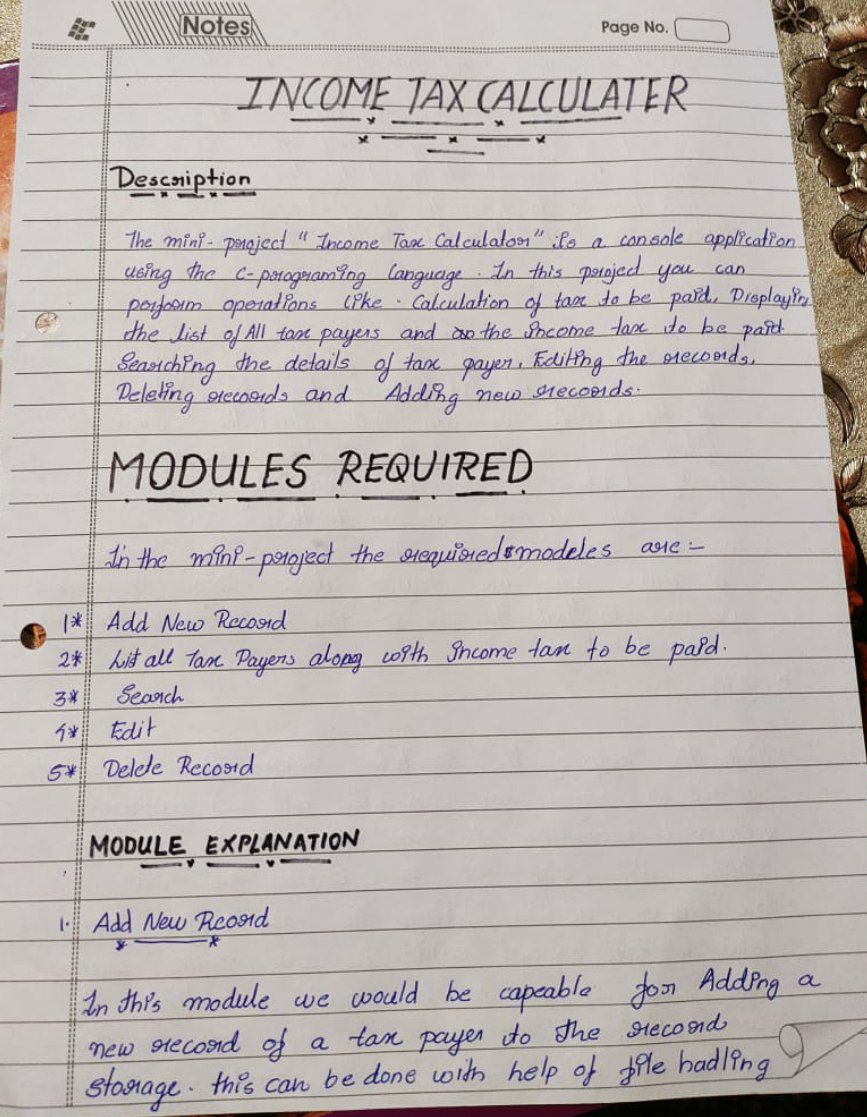 Notes
Page No.
INCOME TAX CALCULATER
Description
The mini-project "Income Tax Calculator" is a console application
using the C-programing language. In this project you can
perform operations like. Calculation of tax to be paid, Displayin
the list of All tax payers and the income tax to be paid.
Searching the details of tax payer, Editing the records,
Deleting records and Adding new records.
MODULES REQUIRED
In the mini-project the required modeles are :-
1* Add New Record
2* List all Tax Payers along with income tax to be paid.
3* Search
4* Edit
5* Delete Record
MODULE EXPLANATION
1. Add New Record
In this module we would be capeable for Adding a
new record of a tax payer to the record
storage. this can be done with help of file hadling